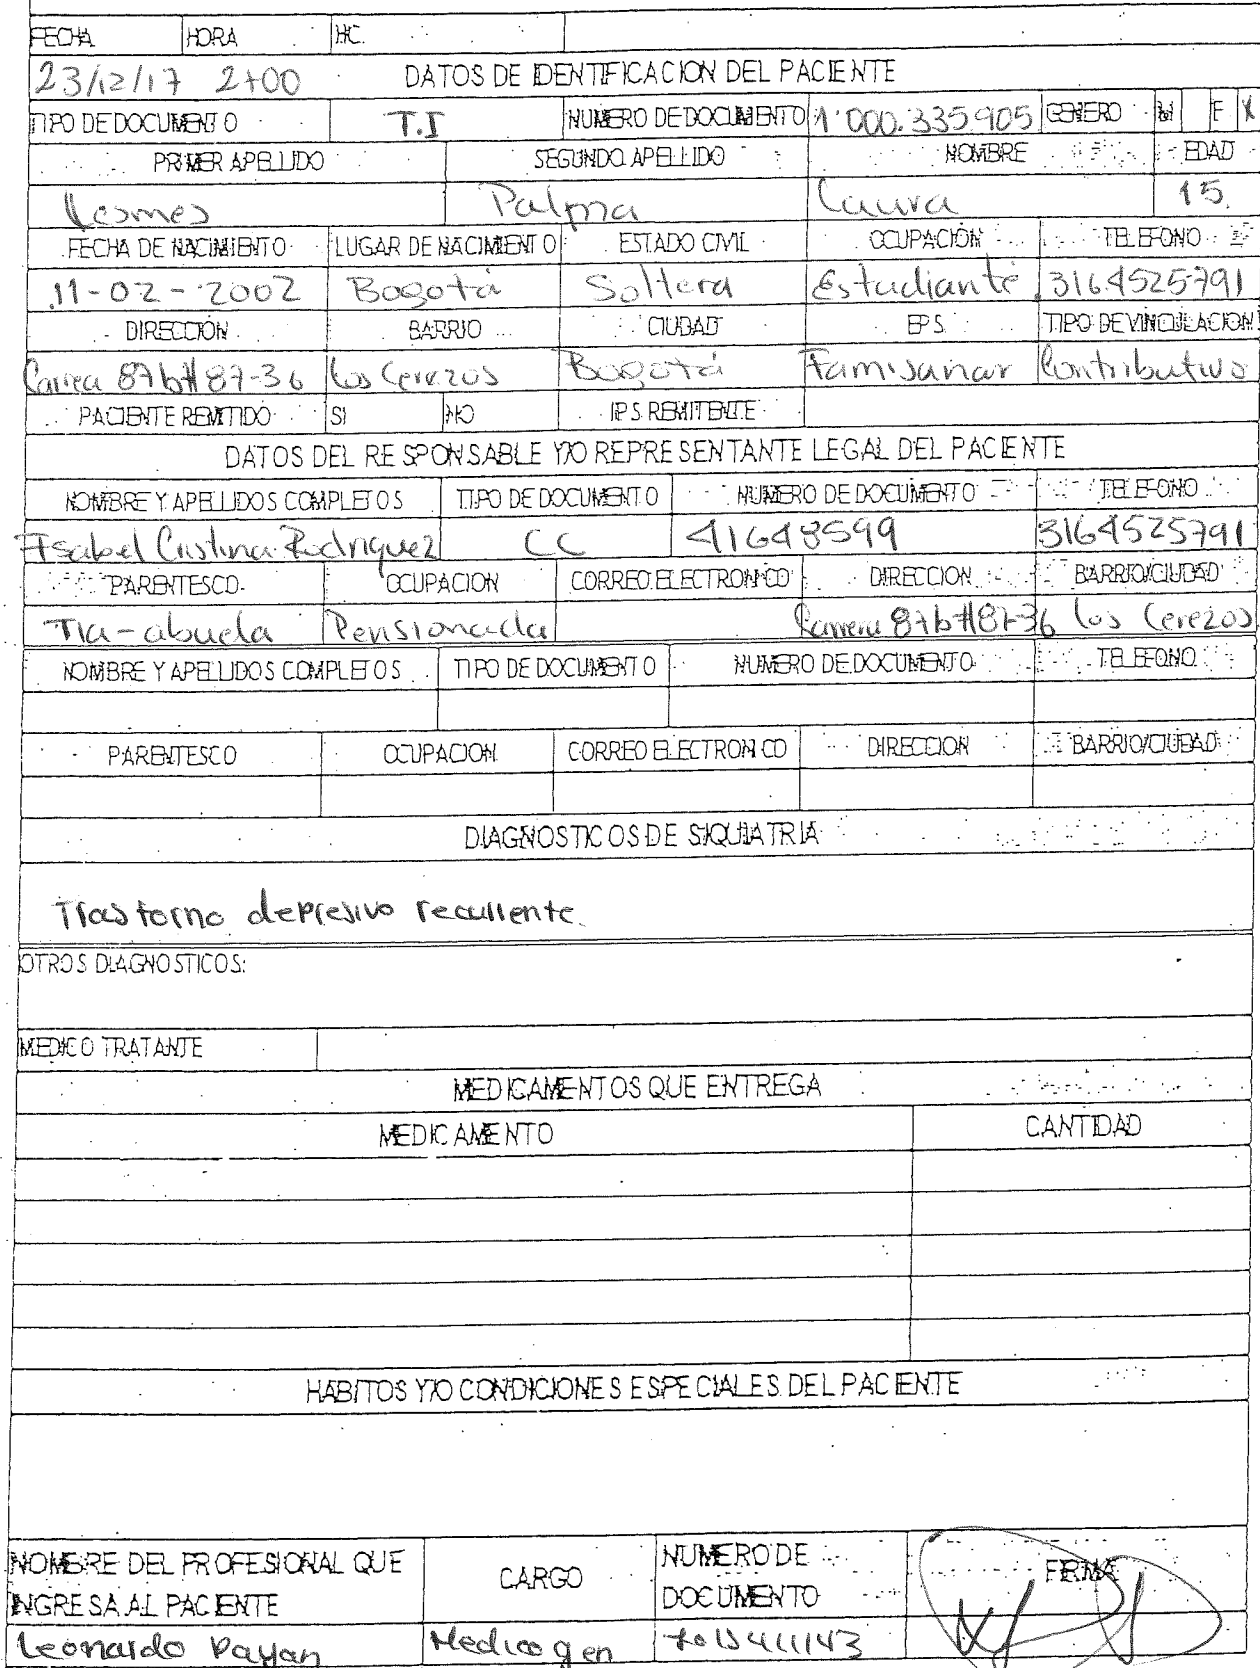 FECHA HORA HC.
23/12/17 2+00 DATOS DE IDENTIFICACION DEL PACIENTE
TIPO DE DOCUMENTO T.I NUMERO DE DOCUMENTO 1'000.335.905 GENERO M F X
PRIMER APELLIDO SEGUNDO APELLIDO NOMBRE EDAD
Lesmes Palma Laura 15.
FECHA DE NACIMIENTO LUGAR DE NACIMIENTO ESTADO CIVIL OCUPACIÓN TELEFONO
11-02-2002 Bogotá Soltera Estudiante 3164525791
DIRECCIÓN BARRIO CIUDAD EPS TIPO DE VINCULACION
Carrea 87b#87-36 los Cerezos Bogotá Famisanar Contributivo
PACIENTE REMITIDO SI NO IPS REMITENTE
DATOS DEL RESPONSABLE Y/O REPRESENTANTE LEGAL DEL PACIENTE
NOMBRE Y APELLIDOS COMPLETOS TIPO DE DOCUMENTO NUMERO DE DOCUMENTO TELEFONO
Isabel Cristina Rodriguez CC 41648599 3164525791
PARENTESCO OCUPACION CORREO ELECTRONICO DIRECCION BARRIO/CIUDAD
Tia-abuela Pensionada Carrera 87b#87-36 los Cerezos
NOMBRE Y APELLIDOS COMPLETOS TIPO DE DOCUMENTO NUMERO DE DOCUMENTO TELEFONO
PARENTESCO OCUPACION CORREO ELECTRONICO DIRECCION BARRIO/CIUDAD
DIAGNOSTICOS DE SIQUIATRIA
Trastorno depresivo recurrente.
OTROS DIAGNOSTICOS:
MEDICO TRATANTE
MEDICAMENTOS QUE ENTREGA
MEDICAMENTO CANTIDAD
HABITOS Y/O CONDICIONES ESPECIALES DEL PACIENTE
NOMBRE DEL PROFESIONAL QUE INGRESA AL PACIENTE CARGO NUMERO DE DOCUMENTO FIRMA
Leonardo Payan Medico gen